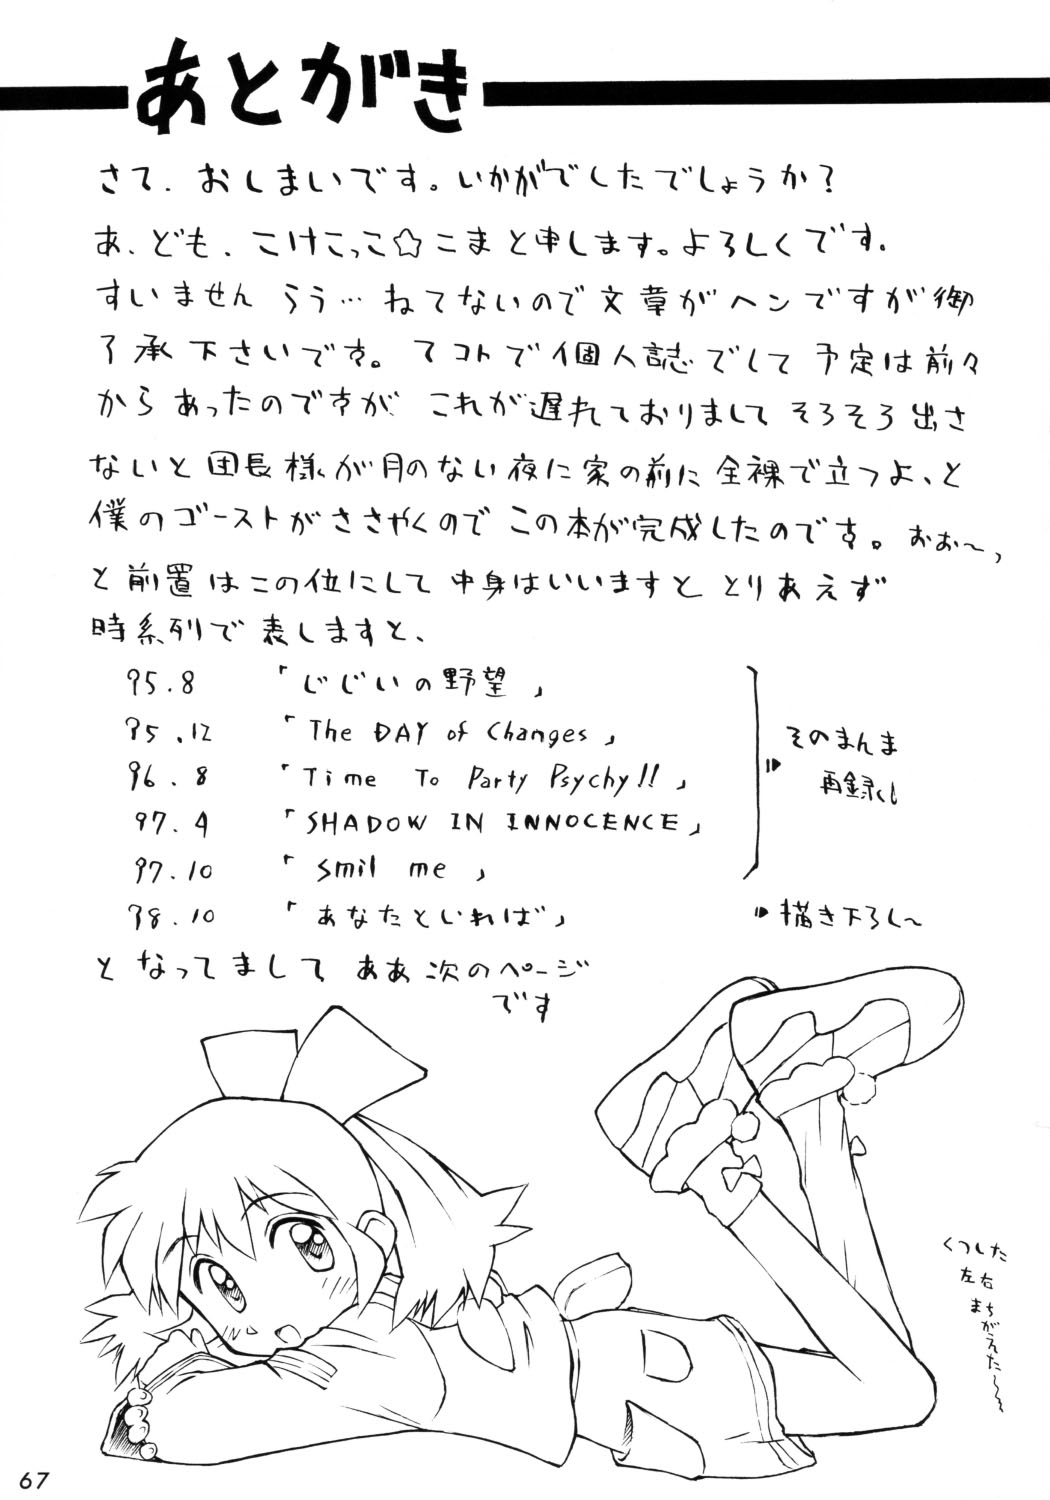 あとがき
さて、おしまいです。いかがでしたでしょうか？
あ、ども、こけこっこ☆こまと申します。よろしくです。
すいません うう… ねてないので文章がヘンですが御
了承下さいです。てコトで個人誌でして予定は前々
からあったのですが これが遅れておりまして そろそろ出さ
ないと団長様が月のない夜に家の前に全裸で立つよ、と
僕のゴーストがささやくのでこの本が完成したのです。おお〜っ
と前置はこの位にして中身はいいますと とりあえず
時系列で表しますと、
95.8 「じじいの野望」
95.12 「The DAY of Changes」
96.8 「Time To Party Psychy!!」
97.4 「SHADOW IN INNOCENCE」
97.10 「Smil me」
そのまんま
再録くし
98.10 「あなたといれば」 描き下ろし〜
となってまして ああ次のページ
です
くつした
左右
まちがえた〜
67